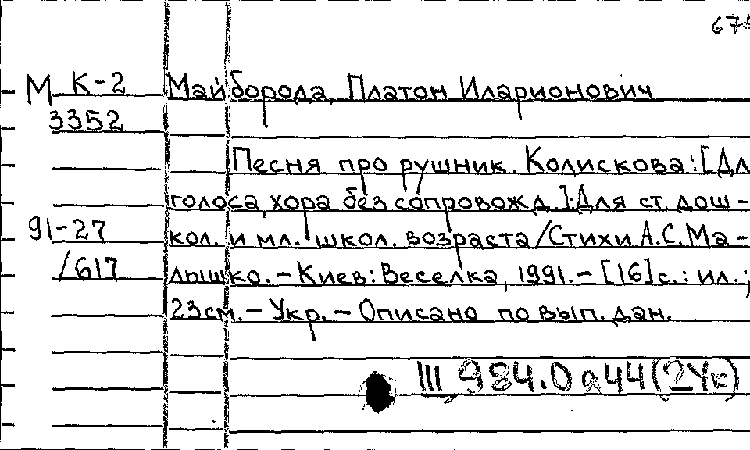 675
М К-2 Майборода, Платон Иларионович
3352
Песня про рушник. Колискова: [Дл
голоса, хора без сопровожд.]: Для ст. дош-
91-27 кол. и мл. школ. возраста/Стихи А.С.Ма-
/617 лышко.-Киев: Веселка, 1991.-[16]с.: ил.;
23см.-Укр.-Описано по вып. дан.
III 984.0 а44(2Ук)